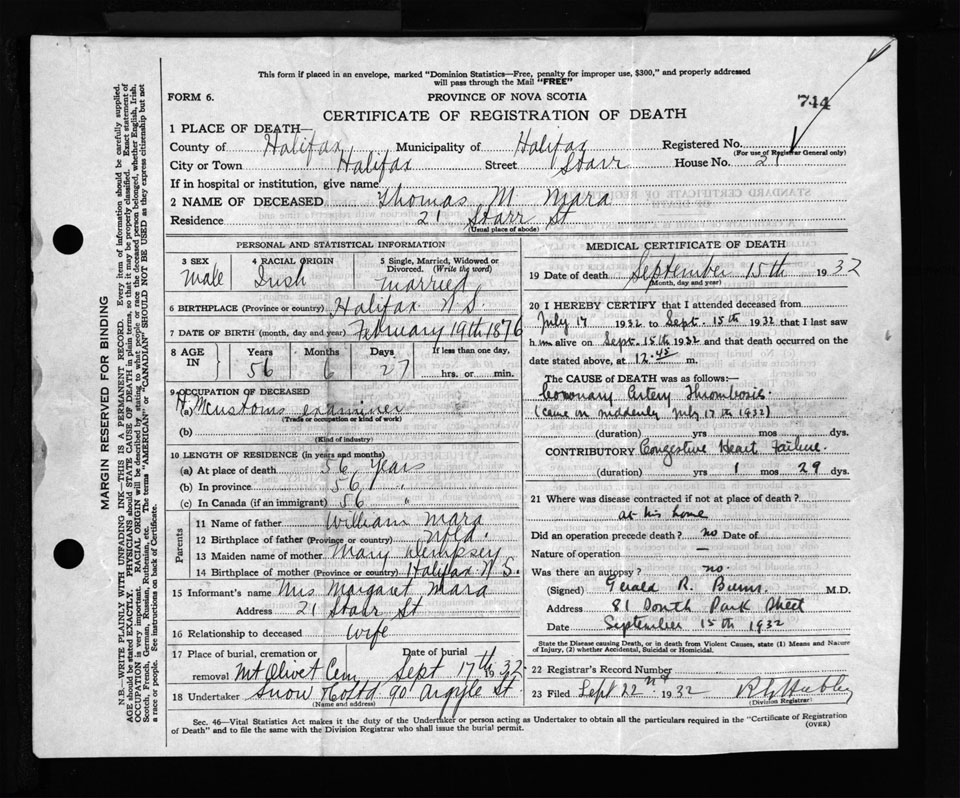 This form if placed in an envelope, marked "Dominion Statistics—Free, penalty for improper use, $300," and properly addressed
will pass through the Mail "FREE"
FORM 6.
PROVINCE OF NOVA SCOTIA
744
CERTIFICATE OF REGISTRATION OF DEATH
1 PLACE OF DEATH—
County of Halifax Municipality of Halifax Registered No.
(For use of Registrar General only)
City or Town Halifax Street Starr House No. 21
If in hospital or institution, give name
2 NAME OF DECEASED Thomas M Mara
Residence 21 Starr St
(Usual place of abode)
PERSONAL AND STATISTICAL INFORMATION
3 SEX Male
4 RACIAL ORIGIN Irish
5 Single, Married, Widowed or Divorced. (Write the word) Married
6 BIRTHPLACE (Province or country) Halifax N.S.
7 DATE OF BIRTH (month, day and year) February 19th 1876
8 AGE IN Years 56 Months 6 Days 27 If less than one day, hrs. or min.
9 OCCUPATION OF DECEASED
(a) Customs examiner
(Trade or occupation or kind of work)
(b)
(Kind of industry)
10 LENGTH OF RESIDENCE (in years and months)
(a) At place of death 56 Years
(b) In province 56 "
(c) In Canada (if an immigrant) 56 "
Parents
11 Name of father William Mara
12 Birthplace of father (Province or country) Nfld.
13 Maiden name of mother Mary Dempsey
14 Birthplace of mother (Province or country) Halifax N.S.
15 Informant's name Mrs Margaret Mara
Address 21 Starr St
16 Relationship to deceased Wife
17 Place of burial, cremation or removal Mt Olivet Cem
Date of burial Sept 17th 1932
18 Undertaker Snow & Co Ltd 90 Argyle St.
(Name and address)
MEDICAL CERTIFICATE OF DEATH
19 Date of death September 15th 1932
(Month, day and year)
20 I HEREBY CERTIFY that I attended deceased from
July 17 1932 to Sept. 15th 1932 that I last saw
him alive on Sept. 15th 1932 and that death occurred on the
date stated above, at 12.45 m.
The CAUSE OF DEATH was as follows:
Coronary Artery Thrombosis.
(Came on suddenly July 17th 1932)
(duration) yrs mos dys.
CONTRIBUTORY Congestive Heart Failure.
(duration) yrs 1 mos 29 dys.
21 Where was disease contracted if not at place of death?
at his home
Did an operation precede death? no Date of
Nature of operation —
Was there an autopsy? no.
(Signed) Gerald R. Burns. M.D.
Address 81 South Park Street
Date September 15th 1932
State the Disease causing Death, or in death from Violent Causes, state (1) Means and Nature of Injury, (2) whether Accidental, Suicidal or Homicidal.
22 Registrar's Record Number
23 Filed Sept 22nd 1932
(Division Registrar)
Sec. 46—Vital Statistics Act makes it the duty of the Undertaker or person acting as Undertaker to obtain all the particulars required in the "Certificate of Registration
of Death" and to file the same with the Division Registrar who shall issue the burial permit.
(OVER)
MARGIN RESERVED FOR BINDING
N.B.—WRITE PLAINLY WITH UNFADING INK—THIS IS A PERMANENT RECORD. Every item of information should be carefully supplied.
AGE should be stated EXACTLY. PHYSICIANS should STATE CAUSE OF DEATH in plain terms, so that it may be properly classified. Exact statement of
OCCUPATION is very important. RACIAL ORIGIN will be described by stating to what people or race the deceased person belonged, whether English, Irish,
Scotch, French, German, Russian, Ruthenian, etc. The terms "AMERICAN" or "CANADIAN" SHOULD NOT BE USED as they express citizenship but not
a race or people. See instructions on back of Certificate.